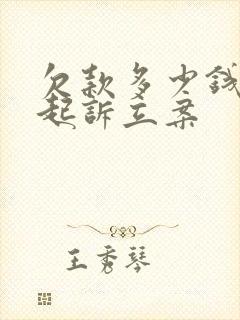 欠款多少钱
起訴立案
王秀琴